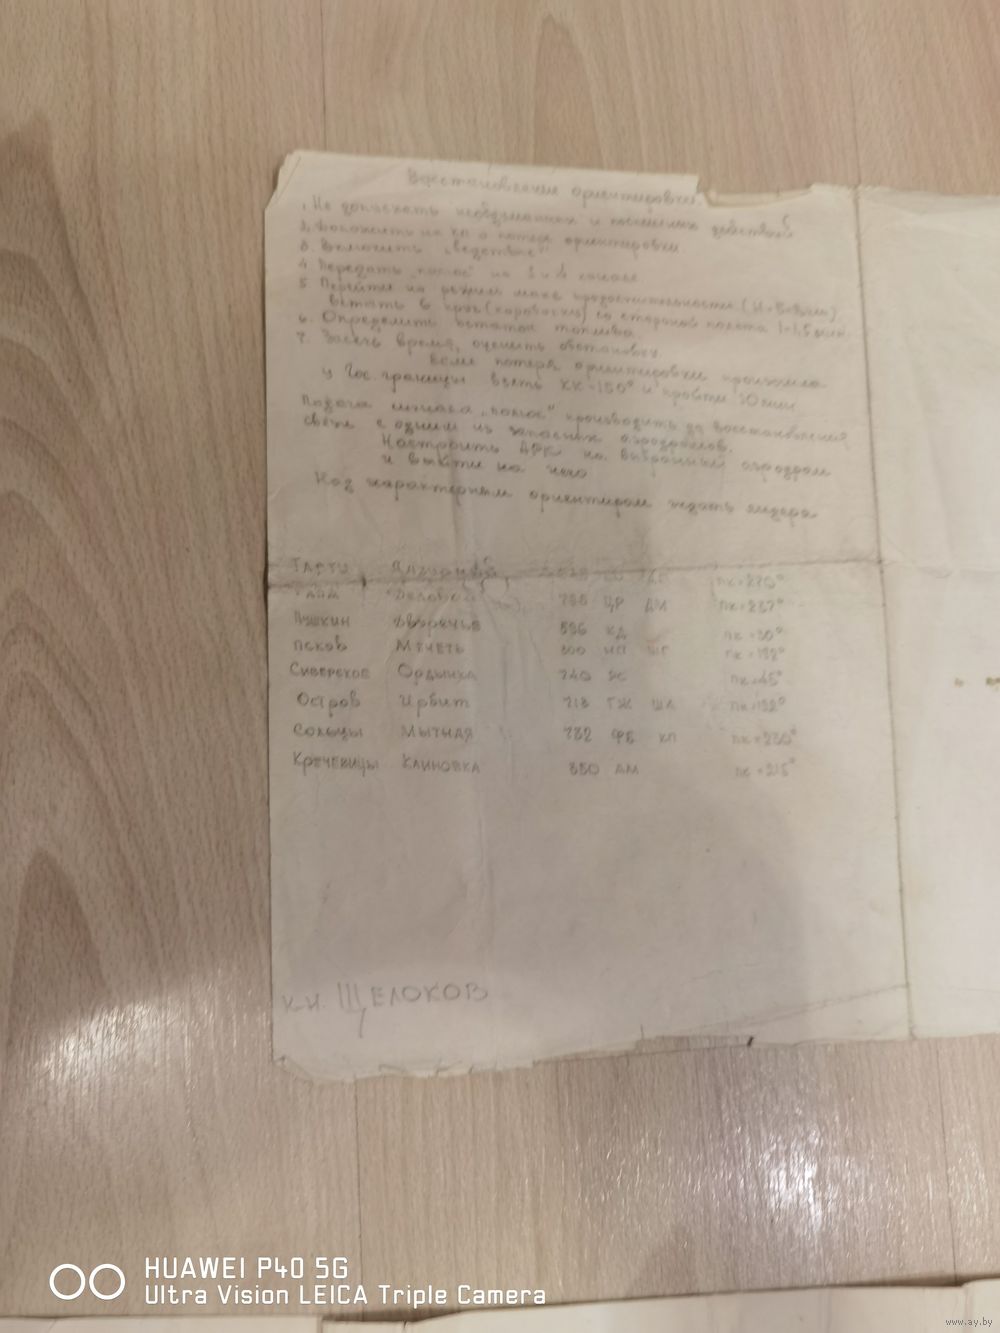 Восстановление ориентировки
1. Не допускать необдуманных и поспешных действий
2. Доложить на КП о потере ориентировки
3. Включить „бедствие"
4. Передать „полюс" на 1 и 4 канале
5. Перейти на режим макс продолжительности (H=
встать в круг (коробочку) со стороной полета 1-1,5 мин.
6. Определить остаток топлива
7. Засечь время, оценить обстановку
Если потеря ориентировки произошла
у Гос. границы взять КК=150° и пройти 10 мин
Подача сигнала „полюс" производить до восстановления
связи с одним из запасных аэродромов.
Настроить АРК на выбранный аэродром
и выйти на него
Над характерным ориентиром ждать лидера
ТАРТУ ПК=220°
ЦР ПК=237°
Пушкин 596 КД ПК=30°
Псков Мечеть 300 ПК=192°
Сиверское Ордынка 740 ПК=45°
Остров Ирбит 718 ГЖ ША ПК=192°
Сольцы Мытная 732 ФБ КП ПК=230°
Кречевицы Клиновка 350 АМ ПК=215°
К-Н. ЩЕЛОКОВ
HUAWEI P40 5G
Ultra Vision LEICA Triple Camera
www.ay.by